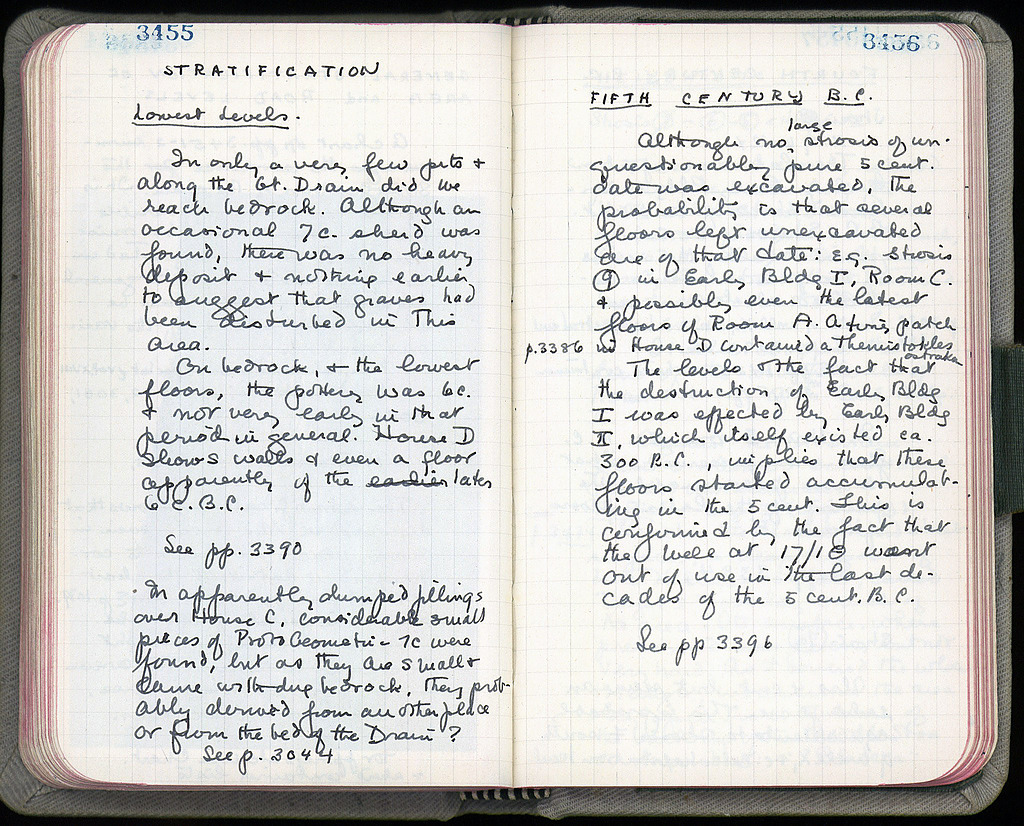 3455
STRATIFICATION
Lowest Levels.
In only a very few pits +
along the Gt. Drain did we
reach bedrock. Although an
occasional 7c. sherd was
found, there was no heavy
deposit + nothing earlier
to suggest that graves had
been disturbed in This
area.
On bedrock, + the lowest
floors, the pottery was 6c.
+ not very early in that
period in general. House D
shows walls & even a floor
apparently of the earlier later
6 C. B.C.
See pp. 3390
In apparently dumped fillings
over House C, considerable small
pieces of ProtoGeometric - 7c were
found, but as they are small +
came with dug bedrock, they prob-
ably derived from another place
or from the bed of the Drain?
See p. 3044
3456
FIFTH CENTURY B.C.
large
Although no strosis of un-
questionably pure 5 cent.
date was excavated, the
probability is that several
floors left unexcavated
are of that date: E.g. Strosis
9 in Early Bldg I, Room C.
+ possibly even the latest
floors of Room A. A tiny patch
p.3386 in House D contained a Themistokles
ostrakon
The levels & the fact that
the destruction of Early Bldg
I was effected by Early Bldg
II, which itself existed ca.
300 B.C., implies that these
floors started accumulat-
ing in the 5 cent. This is
confirmed by the fact that
the well at 17/18 went
out of use in the last de-
cades of the 5 cent. B.C.
See pp 3396